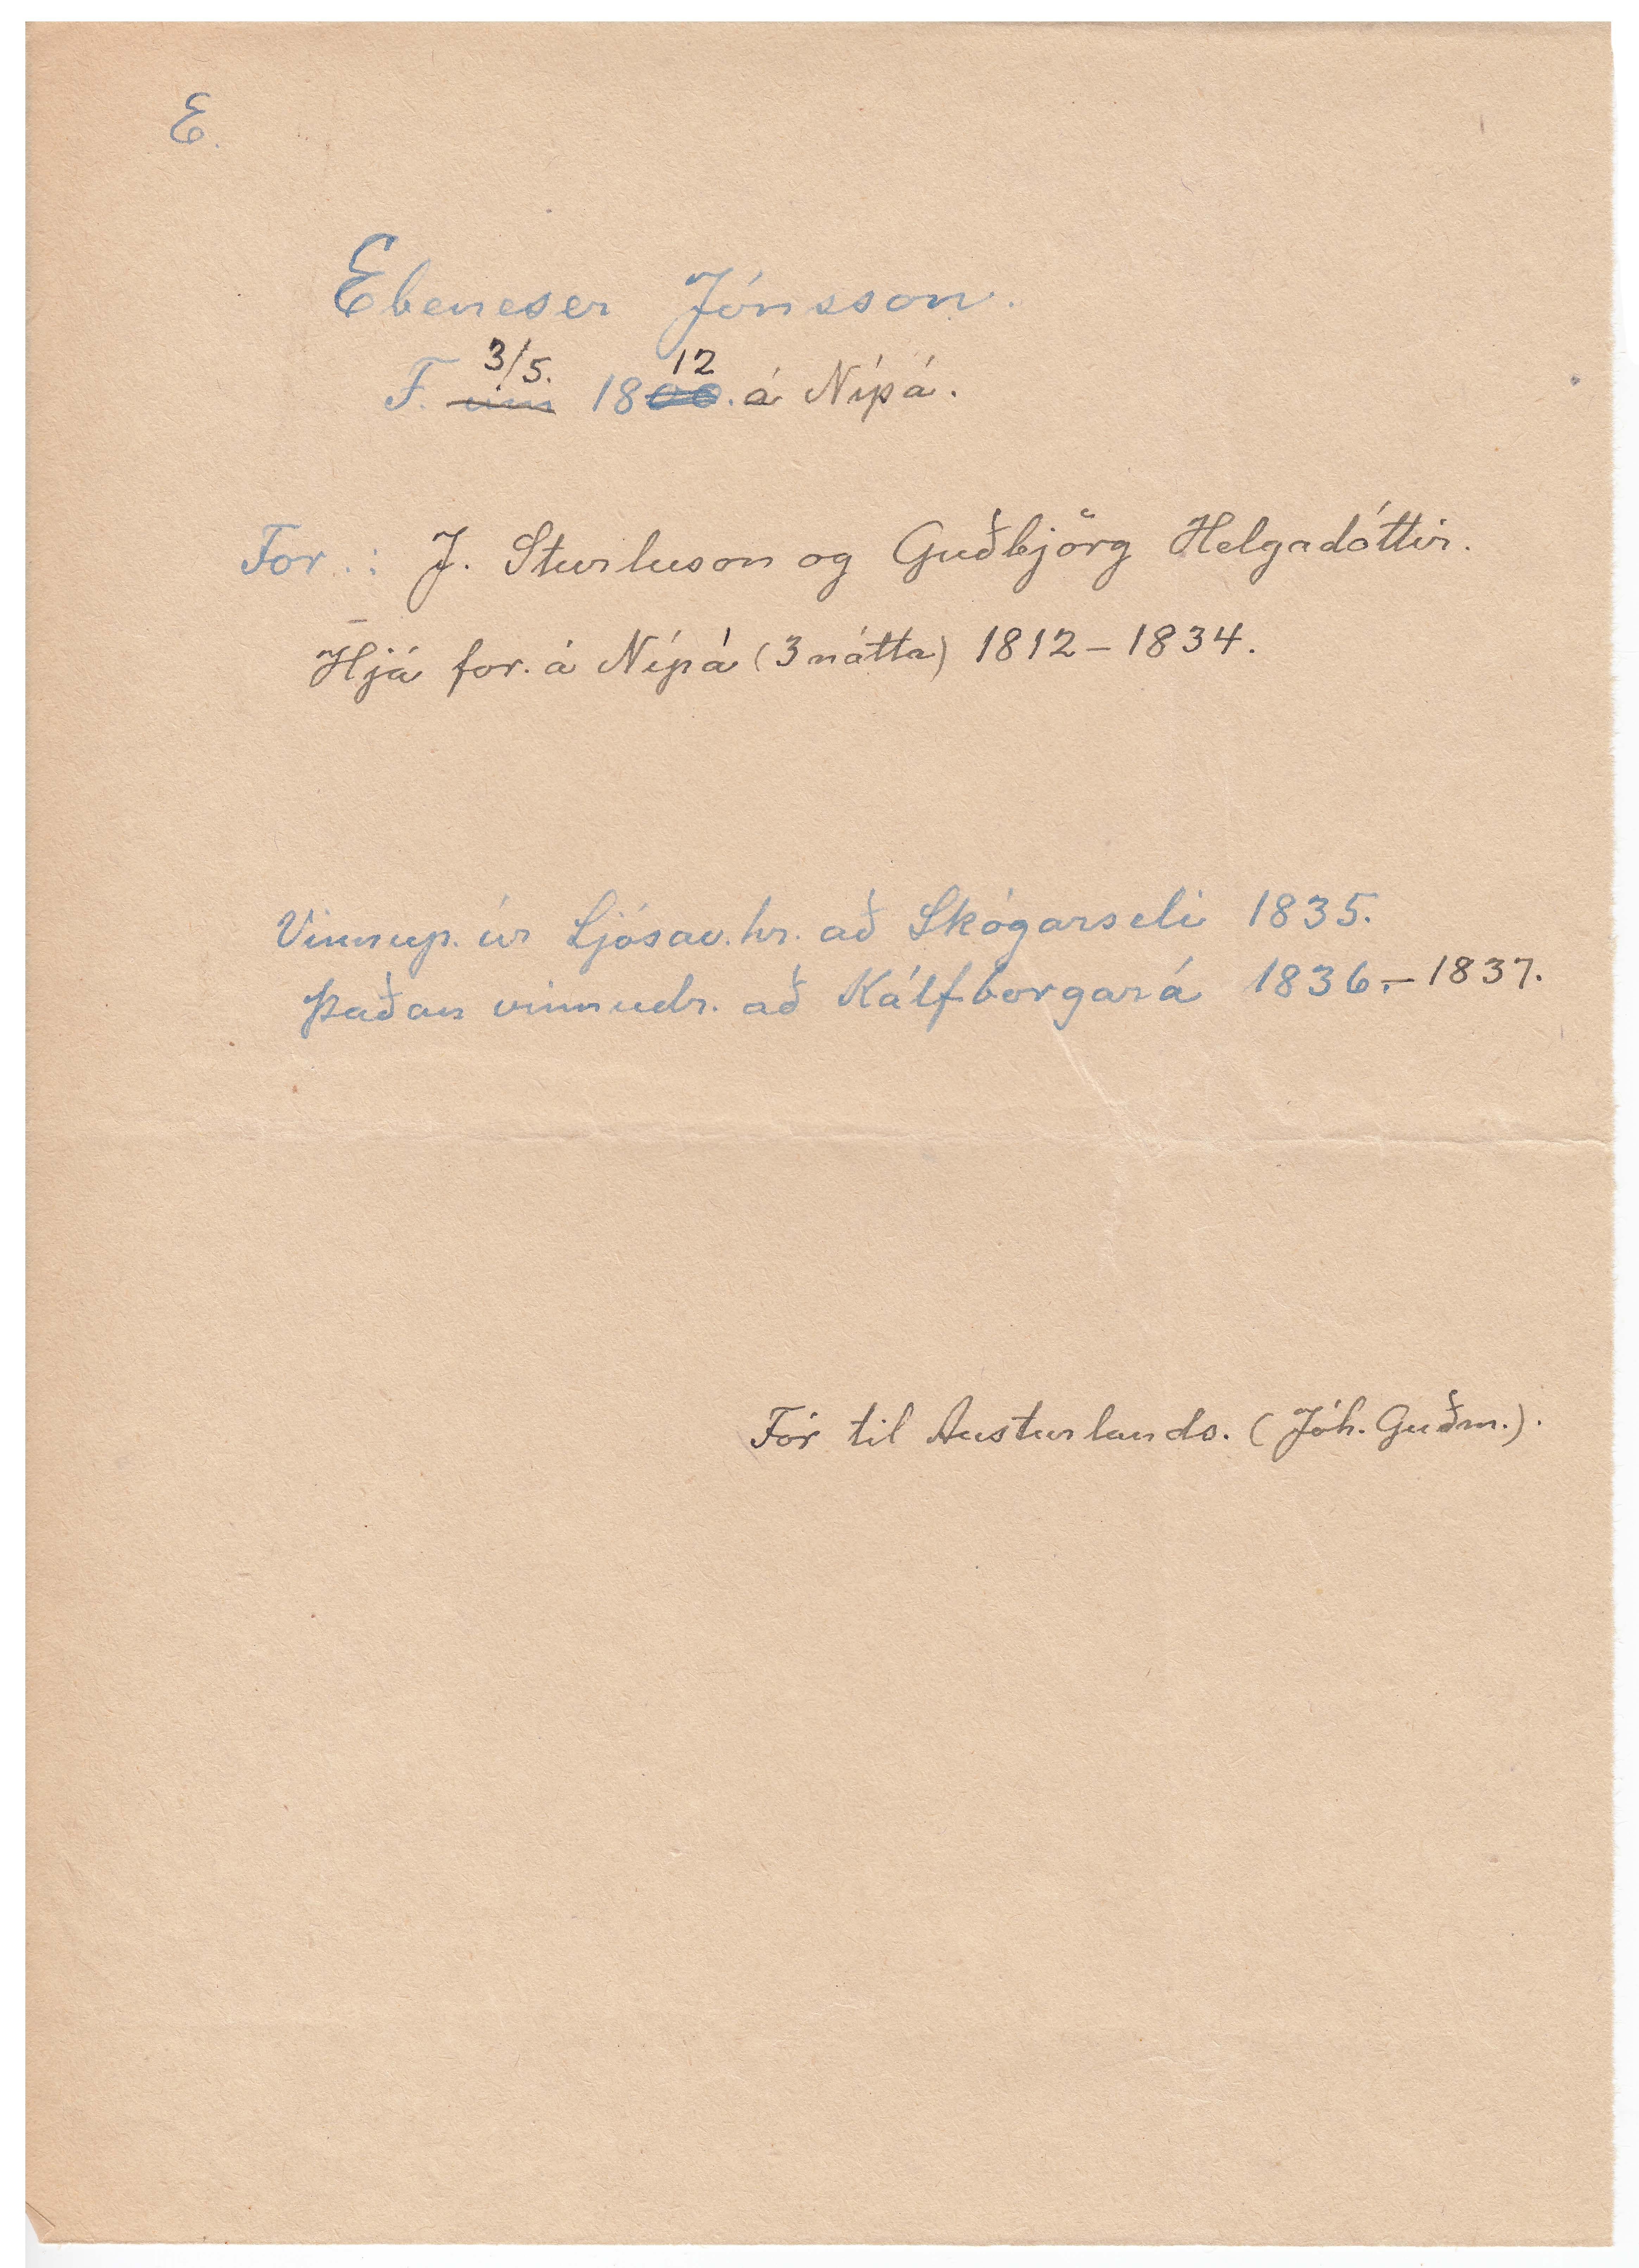 E.
Ebeneser Jónsson.
3/5. 12
F. um 1800. á Nípá.
For.: J. Sturluson og Guðbjörg Helgadóttir.
Hjá for. á Nípá (3 nátta) 1812 – 1834.
Vinnup. úr Ljósav.hr. að Skógarseli 1835.
Þaðan vinnudr. að Kálfborgará 1836. – 1837.
Fór til Austurlands. (Jóh. Guðm.).